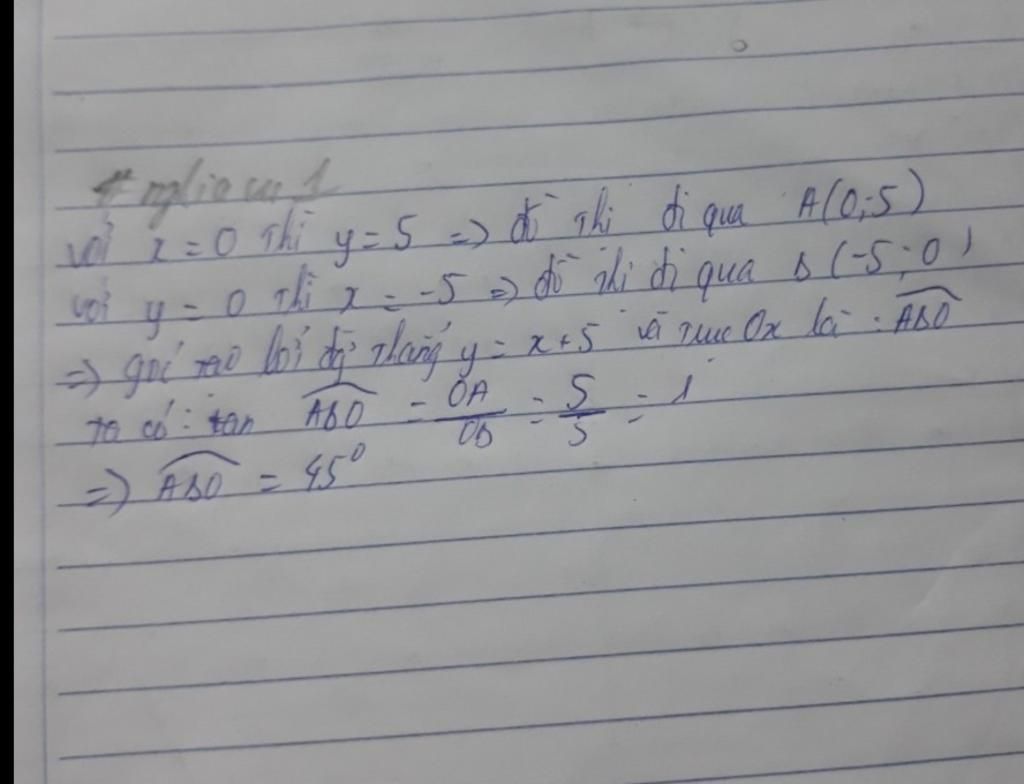 # ngliacu1
với x = 0 thì y = 5 => đồ thị đi qua A(0;5)
với y = 0 thì x = -5 => đồ thị đi qua B(-5;0)
=> góc tạo bởi đg thẳng y = x + 5 và trục Ox là : ABO
ta có : tan ABO = OA/OB = 5/5 = 1
=> ABO = 45°